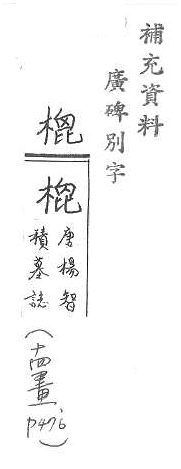 補充資料
廣碑別字
榌
唐楊智
積墓誌
(十四畫、p476)